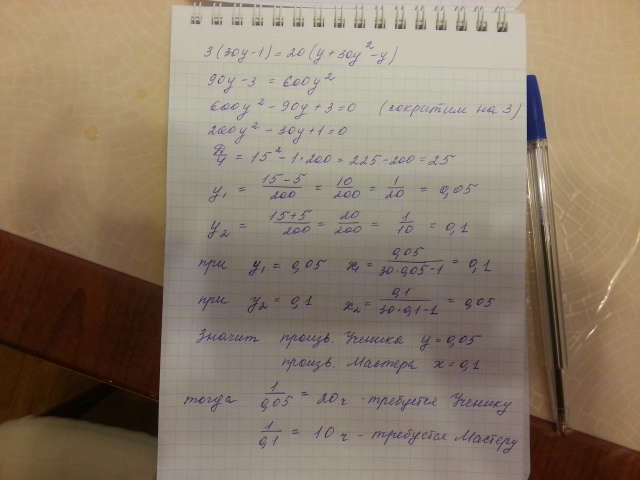 3(30y-1)=20(y+30y²-y)
90y-3 = 600y²
600y² - 90y + 3 = 0 (сократим на 3)
200y² - 30y + 1 = 0
D/4 = 15² - 1·200 = 225 - 200 = 25
y₁ = (15-5)/200 = 10/200 = 1/20 = 0,05
y₂ = (15+5)/200 = 20/200 = 1/10 = 0,1
при y₁ = 0,05 x₁ = 0,05/(30·0,05-1) = 0,1
при y₂ = 0,1 x₂ = 0,1/(30·0,1-1) = 0,05
Значит произв. Ученика y = 0,05
произв. Мастера x = 0,1
тогда 1/0,05 = 20 ч - требуется Ученику
1/0,1 = 10 ч - требуется Мастеру